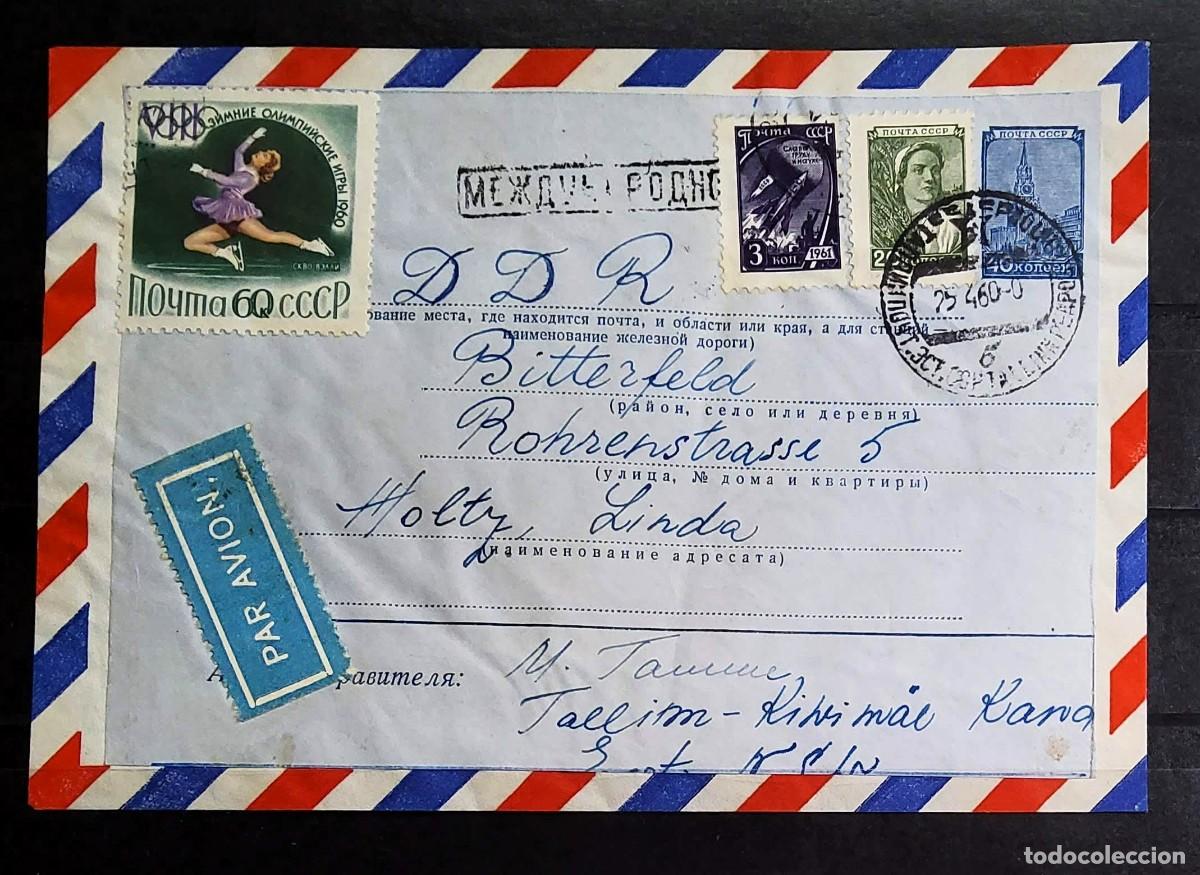 VIII ЗИМНИЕ ОЛИМПИЙСКИЕ ИГРЫ 1960
СКВО-ВЭЛЛИ
ПОЧТА 60К СССР
МЕЖДУНАРОДНО
ПОЧТА СССР
СЛАВА ТРУДУ И НАУКЕ
3 КОП 1961
ПОЧТА СССР
ПОЧТА СССР
40 КОПЕЕК
25 4 60-0
б
DDR
ование места, где находится почта, и области или края, а для станций
наименование железной дороги)
Bitterfeld
(район, село или деревня)
Rohrenstrasse 5
(улица, № дома и квартиры)
Holtz, Linda
(наименование адресата)
PAR AVION
равителя:
Tallinn-Kivimäe Kana
todocoleccion